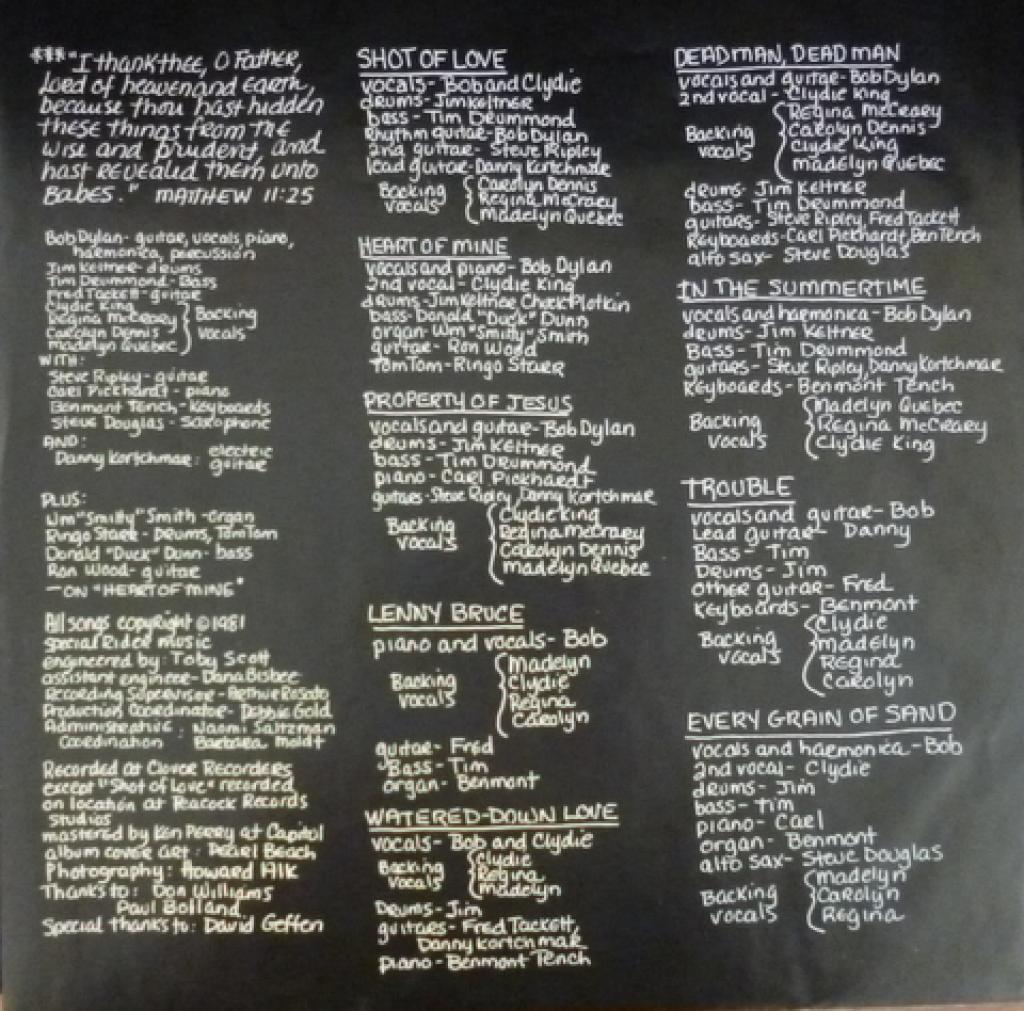 ***"I thank thee, O Father,
Lord of heaven and Earth,
because thou hast hidden
these things from the
wise and prudent, and
hast revealed them unto
Babes." MATTHEW 11:25
Bob Dylan- guitar, vocals, piano,
harmonica, percussion
Jim Keltner- drums
Tim Drummond- Bass
Fred Tackett- guitar
Clydie King
Regina McCreary
Carolyn Dennis
Madelyn Quebec
Backing
vocals
WITH:
Steve Ripley- guitar
Carl Pickhardt- piano
Benmont Tench- Keyboards
Steve Douglas- Saxophone
AND:
Danny Kortchmar: electric
guitar
PLUS:
Wm "Smitty" Smith -organ
Ringo Starr- Drums, TomTom
Donald "Duck" Dunn- bass
Ron Wood- guitar
-ON "HEART OF MINE"
All songs copyright ©1981
Special Rider Music
engineered by: Toby Scott
assistant engineer- Dana Bisbee
Recording Supervisor- Arthur Rosato
Production Coordinator- Debbie Gold
Administrative : Naomi Saltzman
Coordination Barbara Moldt
Recorded at Clover Recorders
except "Shot of Love" recorded
on location at Peacock Records
Studios
mastered by Ken Perry at Capitol
album cover art: Pearl Beach
Photography: Howard Alk
Thanks to: Don Williams
Paul Bolland
Special thanks to: David Geffen
SHOT OF LOVE
vocals- Bob and Clydie
drums- Jim Keltner
bass- Tim Drummond
Rhythm guitar- Bob Dylan
2nd guitar- Steve Ripley
lead guitar- Danny Kortchmar
Backing
vocals
Carolyn Dennis
Regina McCraey
Madelyn Quebec
HEART OF MINE
vocals and piano- Bob Dylan
2nd vocal- Clydie King
drums- Jim Keltner Chuck Plotkin
bass- Donald "Duck" Dunn
organ- Wm "Smitty" Smith
guitar- Ron Wood
TomTom- Ringo Starr
PROPERTY OF JESUS
vocals and guitar- Bob Dylan
drums- Jim Keltner
bass- Tim Drummond
piano- Carl Pickhardt
guitars- Steve Ripley, Danny Kortchmar
Backing
vocals
Clydie King
Regina McCraey
Carolyn Dennis
madelyn Quebec
LENNY BRUCE
piano and vocals- Bob
Backing
vocals
Madelyn
Clydie
Regina
Carolyn
guitar- Fred
Bass- Tim
organ- Benmont
WATERED-DOWN LOVE
vocals- Bob and Clydie
Backing
vocals
Clydie
Regina
madelyn
Drums- Jim
guitars- Fred Tackett,
Danny Kortchmar
piano- Benmont Tench
DEAD MAN, DEAD MAN
vocals and guitar- Bob Dylan
2nd vocal- Clydie King
Backing
vocals
Regina McCreary
Carolyn Dennis
Clydie King
madelyn Quebec
drums- Jim Keltner
bass- Tim Drummond
guitars- Steve Ripley, Fred Tackett
Keyboards- Carl Pickhardt, Ben Tench
alto sax- Steve Douglas
IN THE SUMMERTIME
vocals and harmonica- Bob Dylan
drums- Jim Keltner
Bass- Tim Drummond
guitars- Steve Ripley, Danny Kortchmar
Keyboards- Benmont Tench
Backing
vocals
Madelyn Quebec
Regina McCreary
Clydie King
TROUBLE
vocals and guitar- Bob
Lead guitar- Danny
Bass- Tim
Drums- Jim
other guitar- Fred
Keyboards- Benmont
Backing
vocals
Clydie
madelyn
Regina
Carolyn
EVERY GRAIN OF SAND
vocals and harmonica- Bob
2nd vocal- Clydie
drums- Jim
bass- Tim
piano- Carl
organ- Benmont
alto sax- Steve Douglas
Backing
vocals
madelyn
Carolyn
Regina